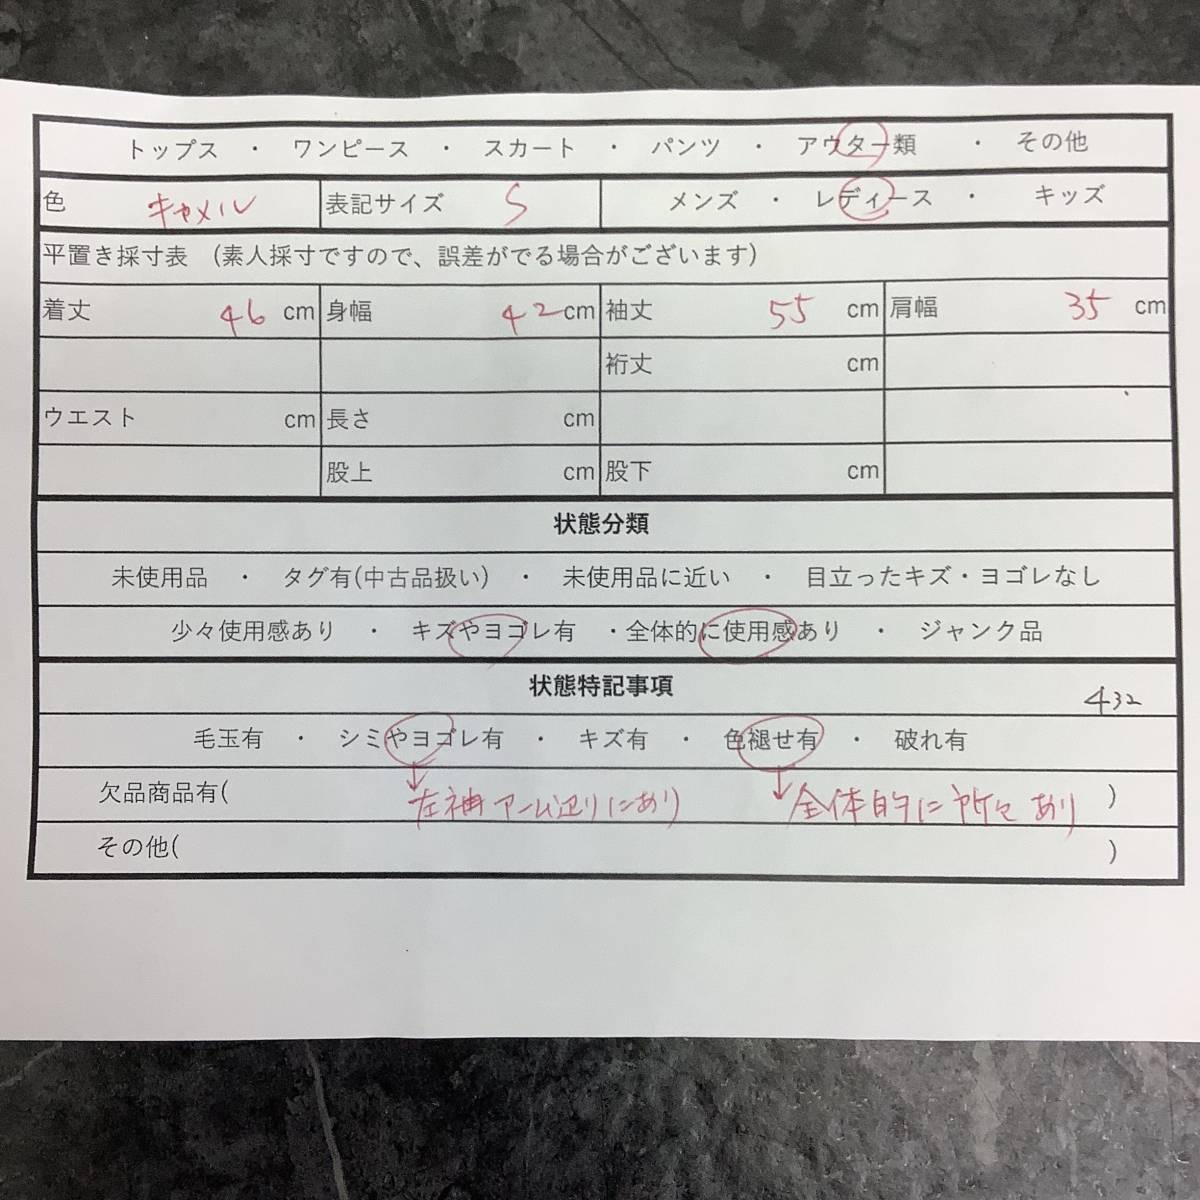 トップス ・ ワンピース ・ スカート ・ パンツ ・ アウター類 ・ その他
色 キャメル 表記サイズ S メンズ ・ レディース ・ キッズ
平置き採寸表 (素人採寸ですので、誤差がでる場合がございます)
着丈 46 cm 身幅 42 cm 袖丈 55 cm 肩幅 35 cm
裄丈 cm
ウエスト cm 長さ cm
股上 cm 股下 cm
状態分類
未使用品 ・ タグ有(中古品扱い) ・ 未使用品に近い ・ 目立ったキズ・ヨゴレなし
少々使用感あり ・ キズやヨゴレ有 ・全体的に使用感あり ・ ジャンク品
状態特記事項
432
毛玉有 ・ シミやヨゴレ有 ・ キズ有 ・ 色褪せ有 ・ 破れ有
欠品商品有( ↓左袖アーム辺りにあり ↓全体的に所々あり )
その他( )